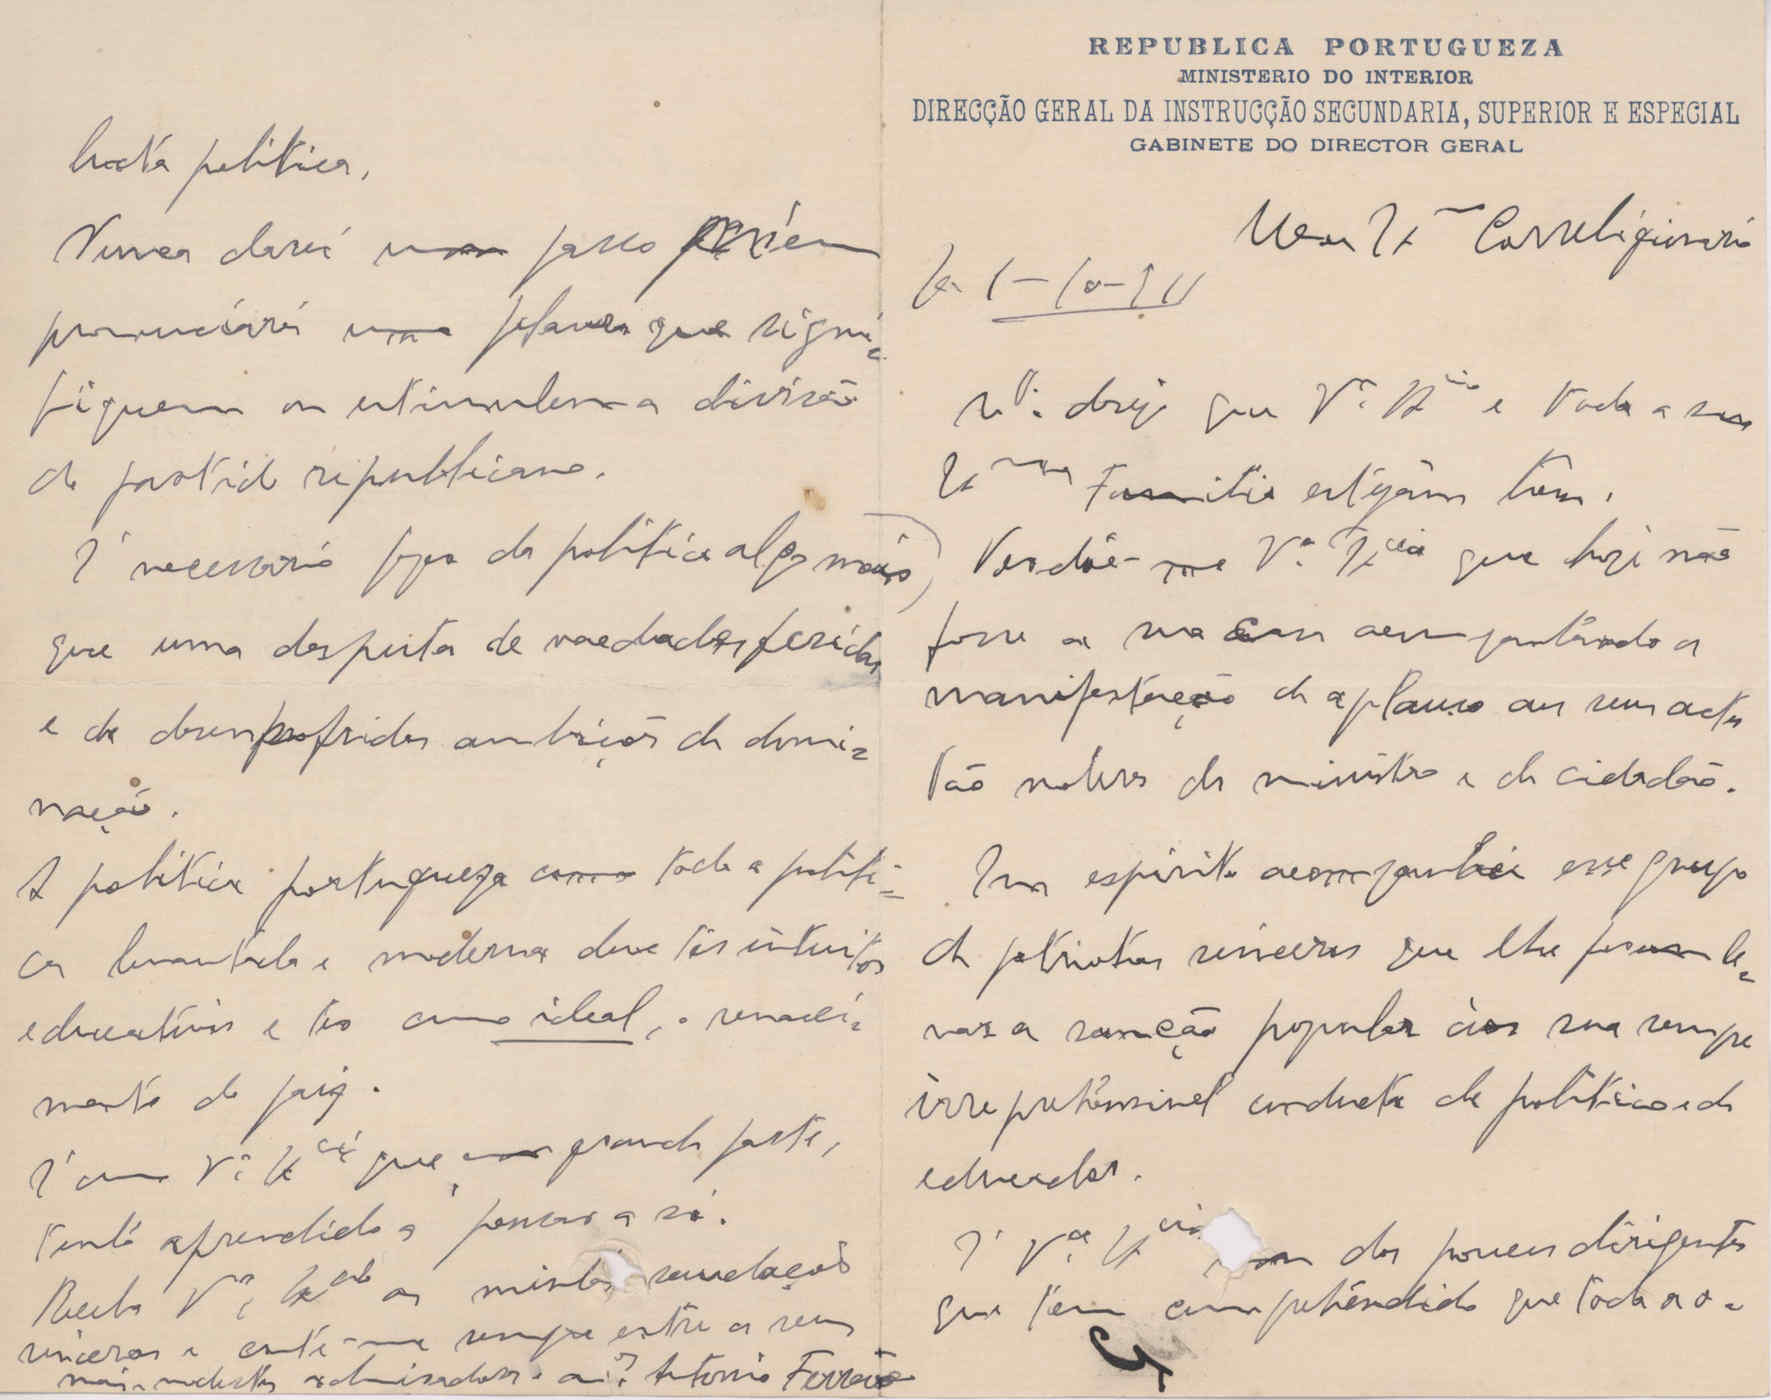 REPUBLICA PORTUGUEZA
MINISTERIO DO INTERIOR
DIRECÇÃO GERAL DA INSTRUCÇÃO SECUNDARIA, SUPERIOR E ESPECIAL
GABINETE DO DIRECTOR GERAL
Meu Ex.mo Correligionario
desejo que V.ª Ex.cia e toda a sua
Ex.ma Familia estejam bem.
Perdôe-me V.ª Ex.cia que hoje não
fosse a sua casa acompanhando a
manifestação de aplauso aos seus actos
tão nobres de ministro e de cidadão.
Em espirito acompanhei esse grupo
de patriotas sinceros que lhe foram le-
var a sancção popular á sua sempre
irreprehensivel conducta de politico e de
educador.
É V.ª Ex.cia um dos poucos dirigentes
que tem comprehendido que toda a
lucta politica.
Nunca darei um passo porém
pronunciarei uma palavra que signi-
fiquem ou estimulem a divisão
do partido republicano.
É necessario fazer da politica algo mais
que uma despeita de vaedades feridas
e de desenfreadas ambições de domi-
nação.
A politica portugueza como toda a politi-
ca levantada e moderna deve ter intuitos
educativos e ter como ideal, o renasci-
mento do paiz.
É com V.ª Ex.cia que, em grande parte,
tenho aprendido a pensar assi.
Receba V.ª Ex.cia as minhas saudações
sinceras e conte-me sempre entre os seus
mais modestos admiradores. Antonio Ferrão